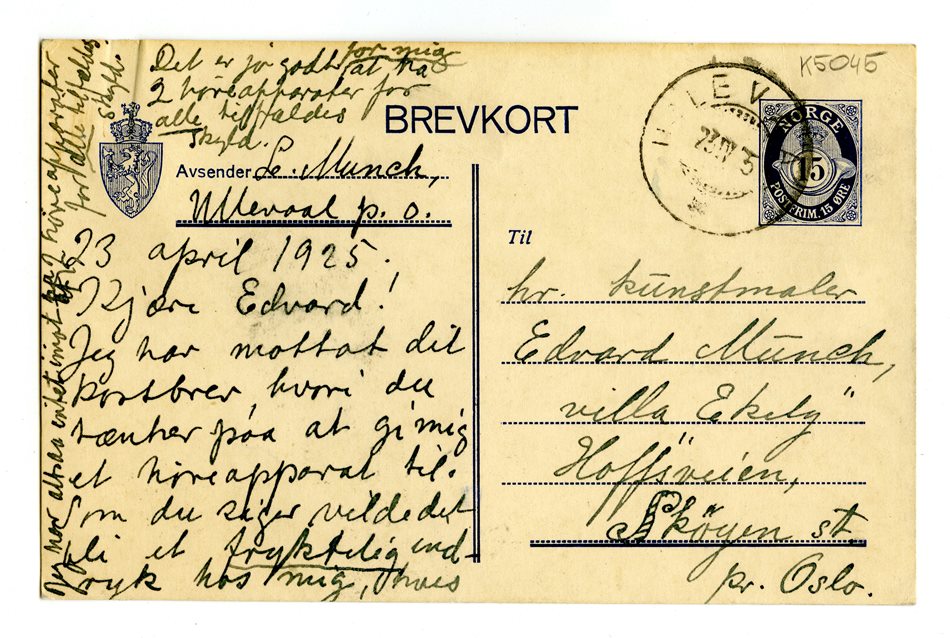 K5045
BREVKORT
NORGE
15
POSTFRIM. 15 ØRE
23 IV
Avsender L. Munch,
Ullevaal p. o.
23 april 1925.
Kjære Edvard!
Jeg har mottat dit
kortbrev, hvori du
tænker paa at gi mig
et høreapparat til.
Som du siger, vilde det
bli et fryktelig ind-
tryk hos mig, hvis
Jeg har altsaa intet imot 2 høreapparater
for alle tilfældes
skyld.
Det er jo godt for mig
at ha
2 høreapparater for
alle tilfældes
skyld.
Til
hr. kunstmaler
Edvard Munch,
villa Ekely"
Hoffsveien,
Skøyen st.
pr. Oslo.